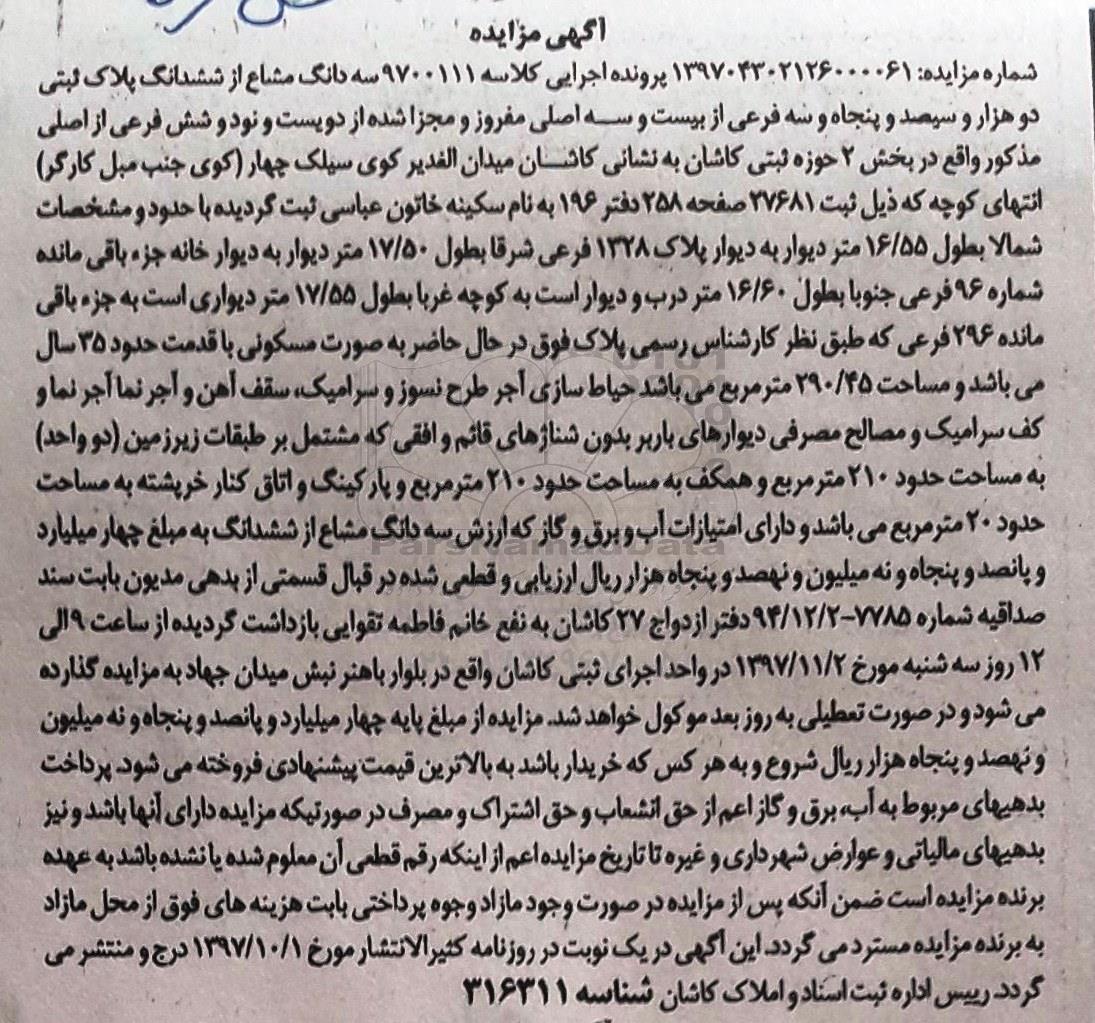 آگهی مزایده
شماره مزایده: ۱۳۹۷۰۴۳۰۲۱۲۶۰۰۰۰۶۱ پرونده اجرایی کلاسه ۹۷۰۰۱۱۱ سه دانگ مشاع از ششدانگ پلاک ثبتی
دو هزار و سیصد و پنجاه و سه فرعی از بیست و سه اصلی مفروز و مجزا شده از دویست و نود و شش فرعی از اصلی
مذکور واقع در بخش ۲ حوزه ثبتی کاشان به نشانی کاشان میدان الغدیر کوی سیلک چهار (کوی جنب مبل کارگر)
انتهای کوچه که ذیل ثبت ۳۷۶۸۱ صفحه ۲۵۸ دفتر ۱۹۶ به نام سکینه خاتون عباسی ثبت گردیده با حدود و مشخصات
شمالا بطول ۱۶/۵۵ متر دیوار به دیوار پلاک ۱۳۲۸ فرعی شرقا بطول ۱۷/۵۰ متر دیوار به دیوار خانه جزء باقی مانده
شماره ۹۶ فرعی جنوبا بطول ۱۶/۶۰ متر درب و دیوار است به کوچه غربا بطول ۱۷/۵۵ متر دیواری است به جزء باقی
مانده ۲۹۶ فرعی که طبق نظر کارشناس رسمی پلاک فوق در حال حاضر به صورت مسکونی با قدمت حدود ۳۵ سال
می باشد و مساحت ۲۹۰/۴۵ مترمربع می باشد حیاط سازی آجر طرح نسوز و سرامیک، سقف آهن و آجر نما آجر نما و
کف سرامیک و مصالح مصرفی دیوارهای باربر بدون شناژهای قائم و افقی که مشتمل بر طبقات زیرزمین (دو واحد)
به مساحت حدود ۲۱۰ مترمربع و همکف به مساحت حدود ۲۱۰ مترمربع و پارکینگ و اتاق کنار خرپشته به مساحت
حدود ۲۰ مترمربع می باشد و دارای امتیازات آب و برق و گاز که ارزش سه دانگ مشاع از ششدانگ به مبلغ چهار میلیارد
و پانصد و پنجاه و نه میلیون و نهصد و پنجاه هزار ریال ارزیابی و قطعی شده در قبال قسمتی از بدهی مدیون بابت سند
صداقیه شماره ۷۷۸۵-۹۴/۱۲/۲ دفتر ازدواج ۲۷ کاشان به نفع خانم فاطمه تقوایی بازداشت گردیده از ساعت ۹ الی
۱۲ روز سه شنبه مورخ ۱۳۹۷/۱۱/۲ در واحد اجرای ثبتی کاشان واقع در بلوار باهنر نبش میدان جهاد به مزایده گذارده
می شود و در صورت تعطیلی به روز بعد موکول خواهد شد. مزایده از مبلغ پایه چهار میلیارد و پانصد و پنجاه و نه میلیون
و نهصد و پنجاه هزار ریال شروع و به هر کس که خریدار باشد به بالاترین قیمت پیشنهادی فروخته می شود. پرداخت
بدهیهای مربوط به آب، برق و گاز اعم از حق انشعاب و حق اشتراک و مصرف در صورتیکه مزایده دارای آنها باشد و نیز
بدهیهای مالیاتی و عوارض شهرداری و غیره تا تاریخ مزایده اعم از اینکه رقم قطعی آن معلوم شده یا نشده باشد به عهده
برنده مزایده است ضمن آنکه پس از مزایده در صورت وجود مازاد وجوه پرداختی بابت هزینه های فوق از محل مازاد
به برنده مزایده مسترد می گردد. این آگهی در یک نوبت در روزنامه کثیرالانتشار مورخ ۱۳۹۷/۱۰/۱ درج و منتشر می
گردد. رییس اداره ثبت اسناد و املاک کاشان شناسه ۳۱۶۳۱۱
ParsNamadData